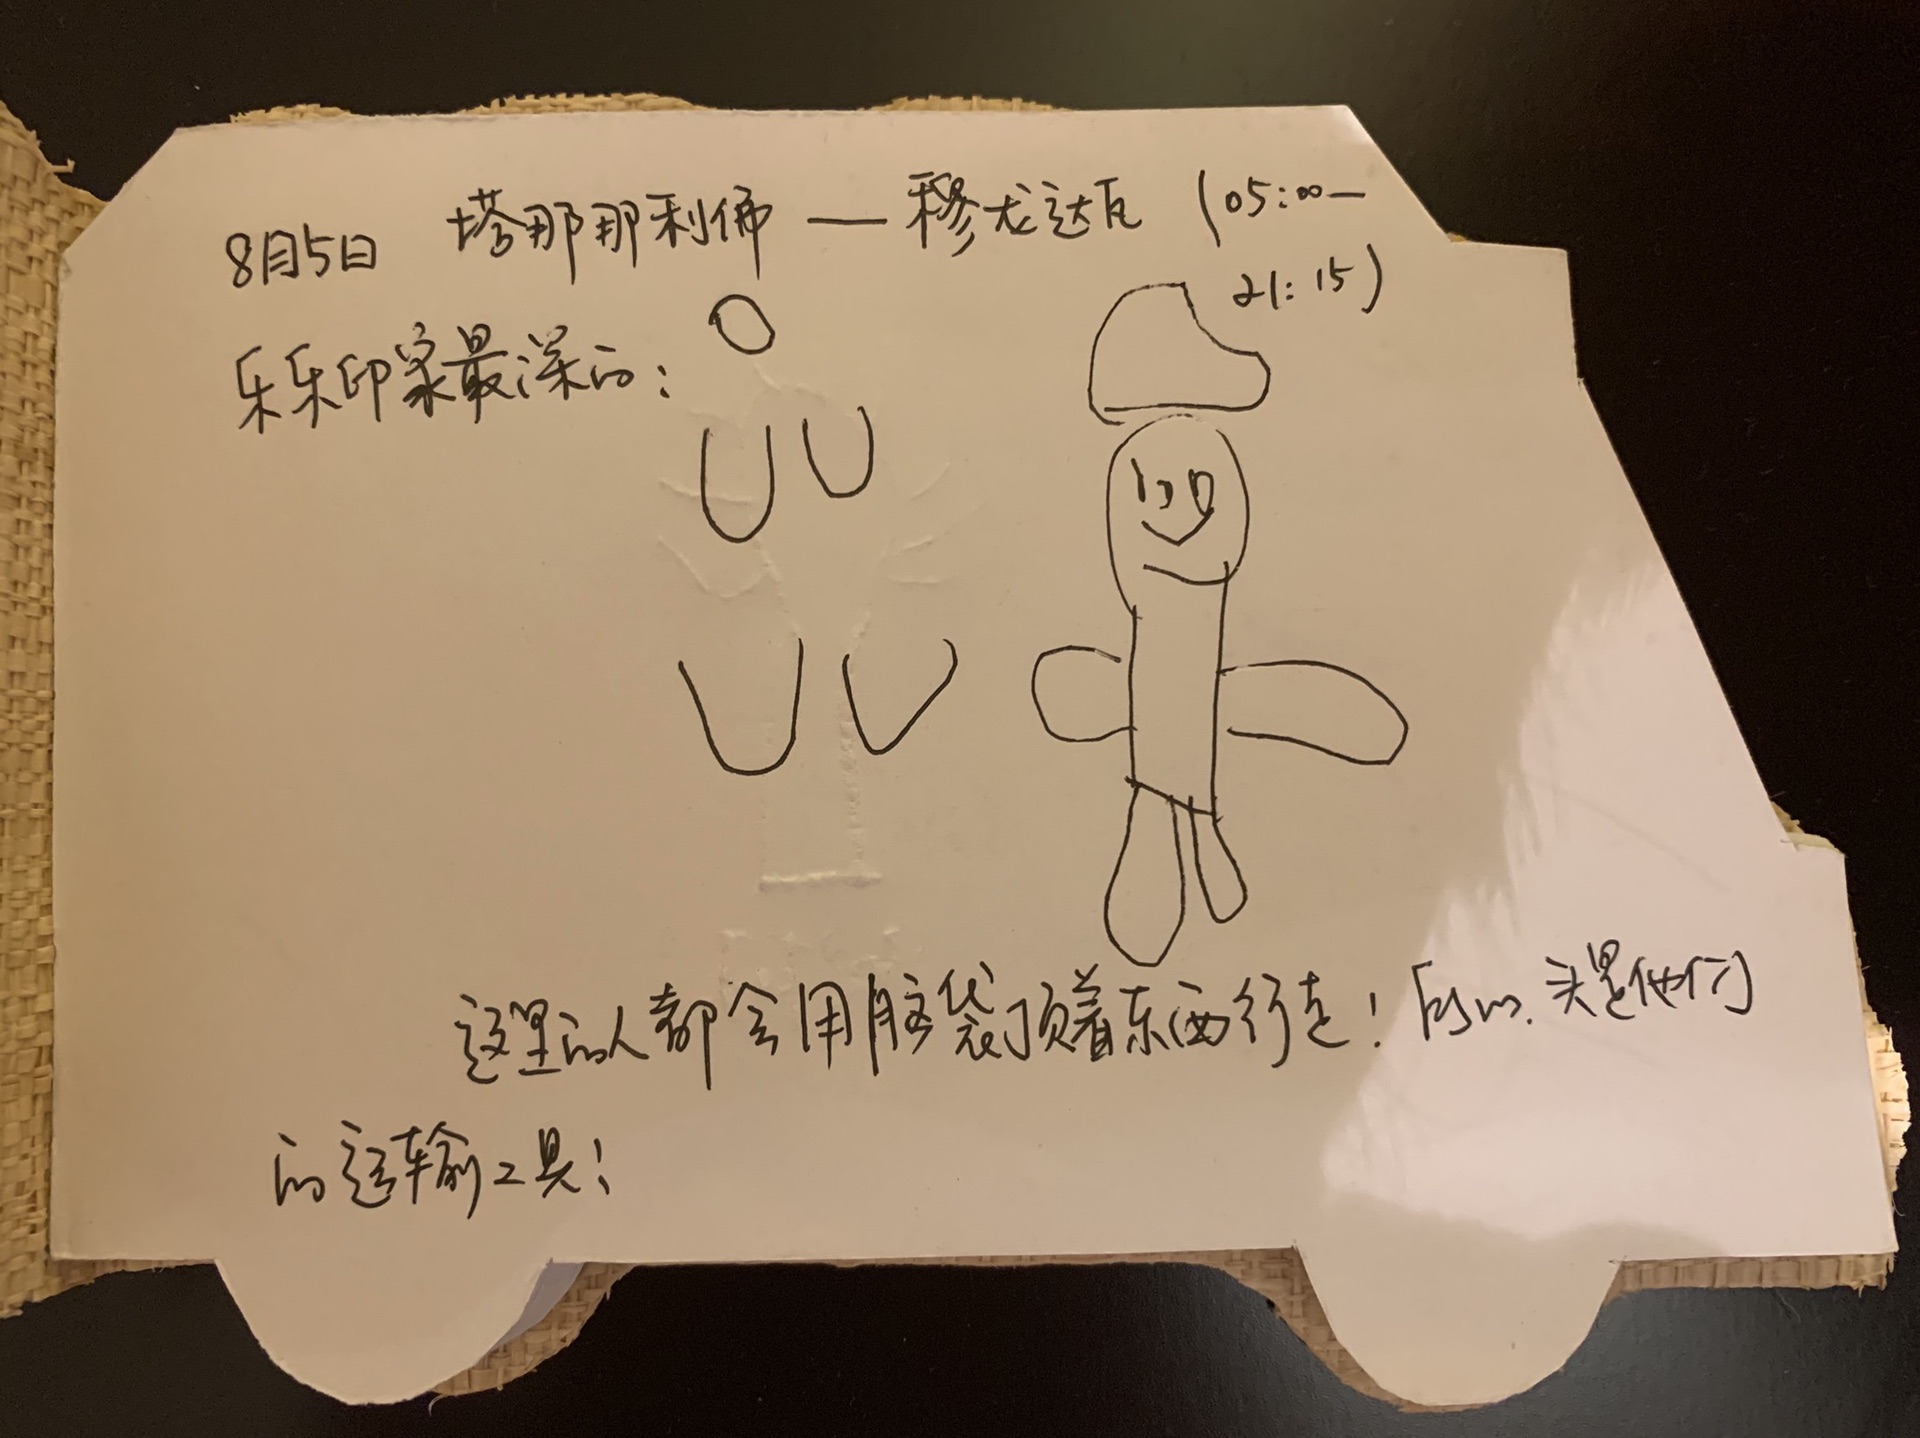 8月5日 塔那那利佛 — 穆龙达瓦 (05:00—
21:15)
乐乐印象最深的:
这里的人都会用脑袋顶着东西行走! 所以, 头是他们
的运输工具!